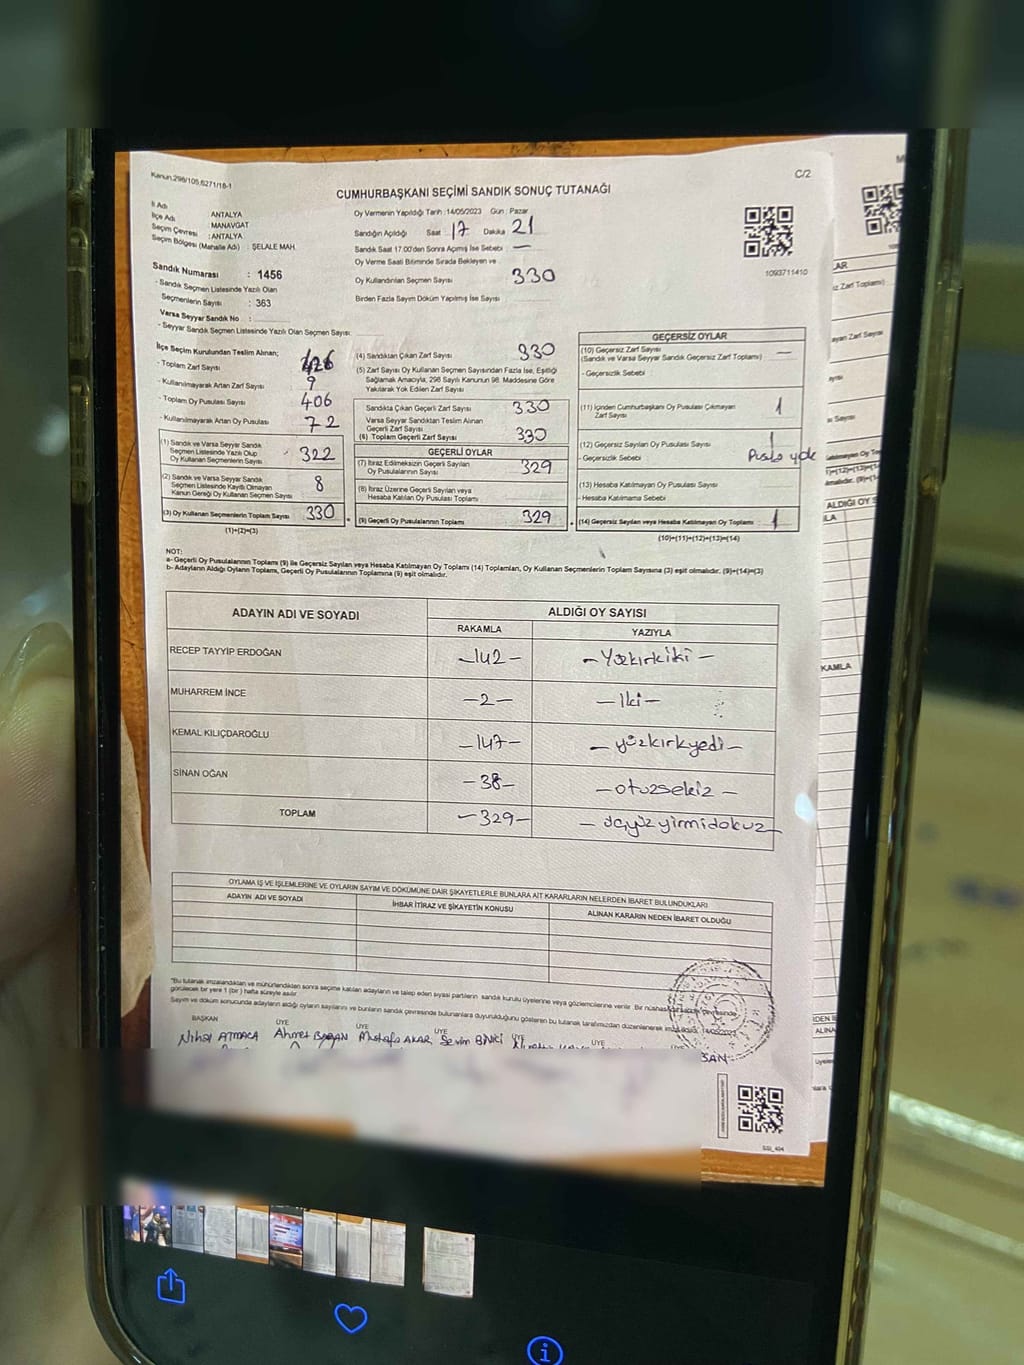 Kanun:298/105,6271/18-1
C/2
CUMHURBAŞKANI SEÇİMİ SANDIK SONUÇ TUTANAĞI
İl Adı : ANTALYA
İlçe Adı : MANAVGAT
Seçim Çevresi : ANTALYA
Seçim Bölgesi (Mahalle Adı) : ŞELALE MAH.
Sandık Numarası : 1456
- Sandık Seçmen Listesinde Yazılı Olan
Seçmenlerin Sayısı : 363
Varsa Seyyar Sandık No :
- Seyyar Sandık Seçmen Listesinde Yazılı Olan Seçmen Sayısı:
Oy Vermenin Yapıldığı Tarih : 14/05/2023 Gün : Pazar
Sandığın Açıldığı Saat : 17 Dakika 21
Sandık Saat 17.00'den Sonra Açımış İse Sebebi : —
Oy Verme Saati Bitiminde Sırada Bekleyen ve
Oy Kullandırılan Seçmen Sayısı 330
Birden Fazla Sayım Döküm Yapılmış İse Sayısı
1093711410
İlçe Seçim Kurulundan Teslim Alınan;
- Toplam Zarf Sayısı
- Kullanılmayarak Artan Zarf Sayısı 9
- Toplam Oy Pusulası Sayısı 406
- Kullanılmayarak Artan Oy Pusulası 72
(1) Sandık ve Varsa Seyyar Sandık
Seçmen Listesinde Yazılı Olup
Oy Kullanan Seçmenlerin Sayısı : 322
(2) Sandık ve Varsa Seyyar Sandık
Seçmen Listesinde Kayıtlı Olmayan
Kanun Gereği Oy Kullanan Seçmen Sayısı 8
(3) Oy Kullanan Seçmenlerin Toplam Sayısı 330
(1)+(2)=(3)
(4) Sandıktan Çıkan Zarf Sayısı 330
(5) Zarf Sayısı Oy Kullanan Seçmen Sayısından Fazla İse, Eşitliği
Sağlamak Amacıyla, 298 Sayılı Kanunun 98. Maddesine Göre
Yakılarak Yok Edilen Zarf Sayısı
Sandıkta Çıkan Geçerli Zarf Sayısı 330
Varsa Seyyar Sandıktan Teslim Alınan
Geçerli Zarf Sayısı
(6) Toplam Geçerli Zarf Sayısı 330
GEÇERLİ OYLAR
(7) İtiraz Edilmeksizin Geçerli Sayılan
Oy Pusulalarının Sayısı 329
(8) İtiraz Üzerine Geçerli Sayılan veya
Hesaba Katılan Oy Pusulalarının Toplamı
(9) Geçerli Oy Pusulalarının Toplamı 329
GEÇERSİZ OYLAR
(10) Geçersiz Zarf Sayısı
(Sandık ve Varsa Seyyar Sandık Geçersiz Zarf Toplamı) —
- Geçersizlik Sebebi :
(11) İçinden Cumhurbaşkanı Oy Pusulası Çıkmayan
Zarf Sayısı 1
(12) Geçersiz Sayılan Oy Pusulası Sayısı 1
- Geçersizlik Sebebi : Pusula yok
(13) Hesaba Katılmayan Oy Pusulası Sayısı
- Hesaba Katılmama Sebebi
(14) Geçersiz Sayılan veya Hesaba Katılmayan Oy Toplamı : 1
(10)+(11)+(12)+(13)=(14)
NOT:
a- Geçerli Oy Pusulalarının Toplamı (9) ile Geçersiz Sayılan veya Hesaba Katılmayan Oy Toplamı (14) Toplamları, Oy Kullanan Seçmenlerin Toplam Sayısına (3) eşit olmalıdır. (9)+(14)=(3)
b- Adayların Aldığı Oyların Toplamı, Geçerli Oy Pusulalarının Toplamına (9) eşit olmalıdır.
ADAYIN ADI VE SOYADI ALDIĞI OY SAYISI
RAKAMLA YAZIYLA
RECEP TAYYİP ERDOĞAN -142- - Yüzkırkiki -
MUHARREM İNCE -2- - İki -
KEMAL KILIÇDAROĞLU -147- - yüzkırkyedi -
SİNAN OĞAN -38- - otuzsekiz -
TOPLAM -329- - üçyüzyirmidokuz -
OYLAMA İŞ VE İŞLEMLERİNE VE OYLARIN SAYIM VE DÖKÜMÜNE DAİR ŞİKAYETLERLE BUNLARA AİT KARARLARIN NELERDEN İBARET BULUNDUKLARI
ADAYIN ADI VE SOYADI İHBAR İTİRAZ VE ŞİKAYETİN KONUSU ALINAN KARARIN NEDEN İBARET OLDUĞU
"Bu tutanak imzalandıktan ve mühürlendikten sonra seçime katılan adayların ve talep eden siyasi partilerin sandık kurulu üyelerine veya gözlemcilerine verilir. Bir nüshası
görülecek bir yere 1 (bir) hafta süreyle asılır.
Sayım ve döküm sonucunda adayların aldığı oyların sayılarını ve bunların sandık çevresinde bulunanlara duyurulduğunu gösteren bu tutanak tarafımızdan düzenlenerek
BAŞKAN ÜYE ÜYE ÜYE ÜYE ÜYE
Nihal ATMACA Ahmet Mustafa AKAR Sevim
SAN